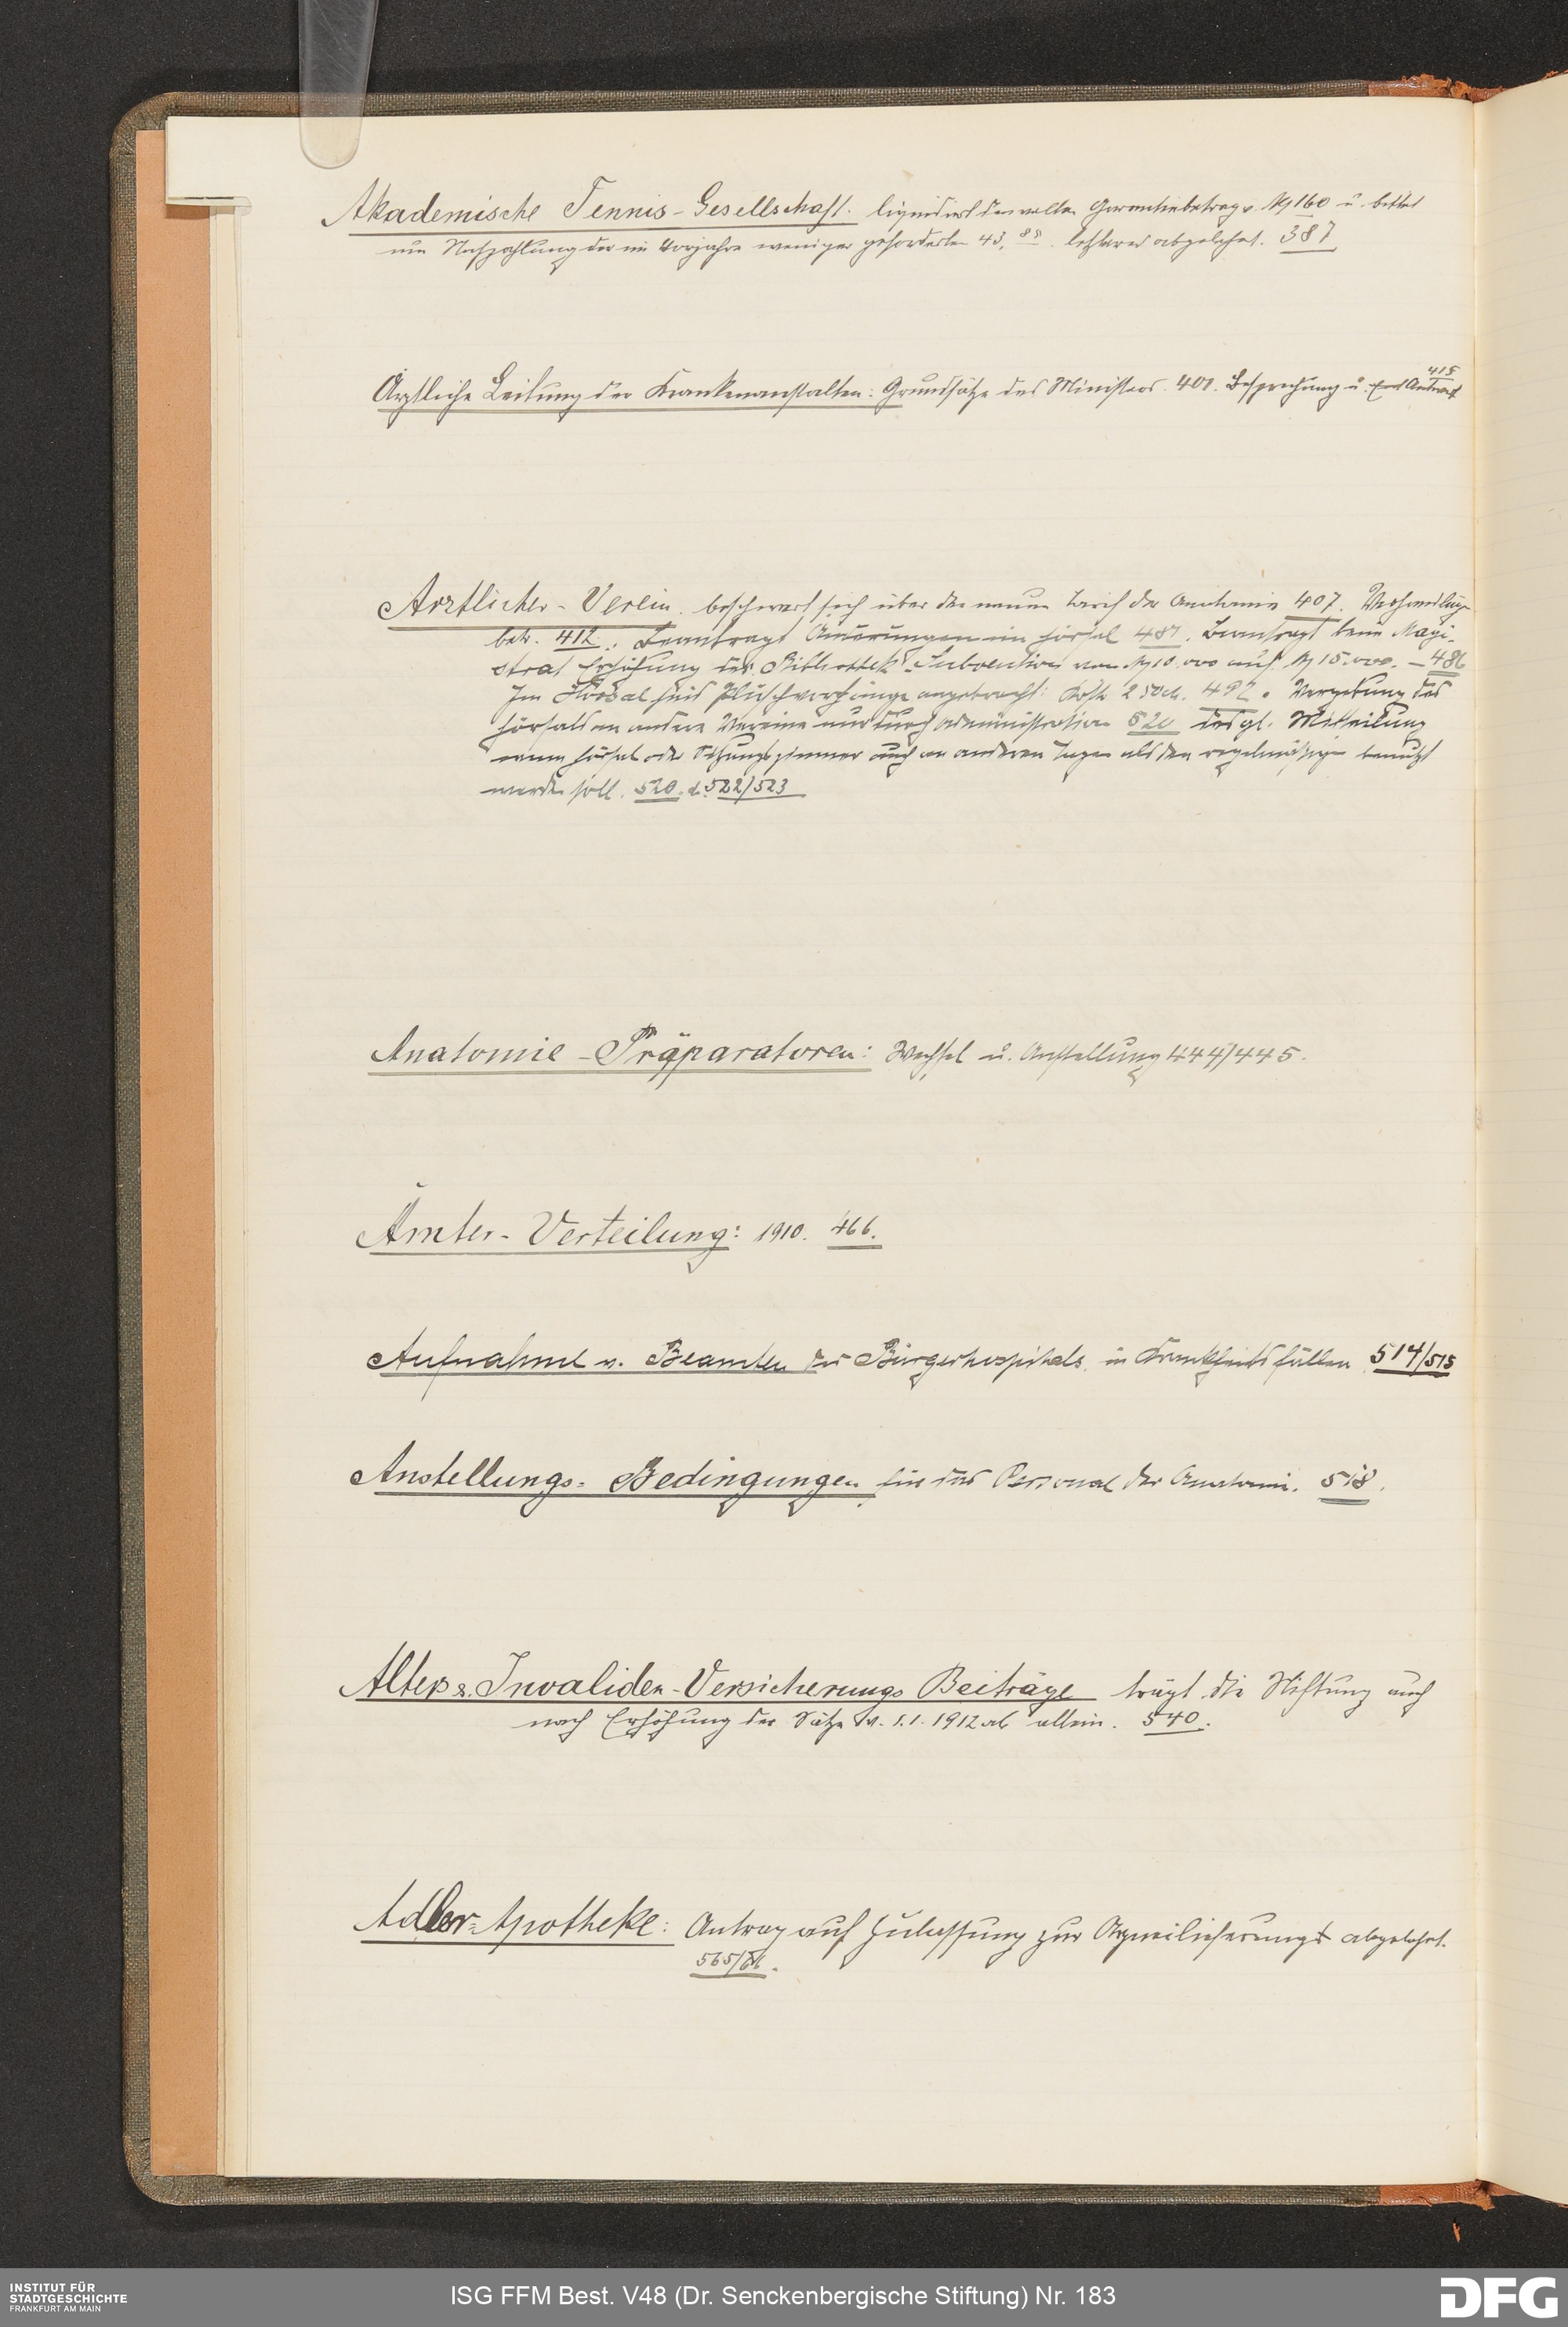 Akademische Tennis-Gesellschaft. liquidiert den vollen Garantiebetrag v. M 160 u. bittet
um Nachzahlung der im Vorjahre weniger geforderten 43.88. letzteres abgelehnt. 387
Ärztliche Leitung der Krankenanstalten: Grundsätze des Ministers. 401. Besprechung u. Antwort 415
Ärztlicher-Verein. beschwert sich über den neuen Tarif der Anatomie 407. Verhandlungen
betr. 412. Beantragt Änderungen im Hörsal 481. Beantragt beim Magi-
strat Erhöhung der Bibliothek-Subvention von M 10.000 auf M 15.000. – 486
Im Hörsal sind Plüschvorhänge angebracht: 492. Vergebung des
Hörsals an andere Vereine nur durch Administration 520 desgl. Mitteilung
wenn Hörsal oder Sitzungszimmer auch an anderen Tagen als den regelmäßigen benutzt
werden soll. 520. 522/523
Anatomie-Präparatoren: Wechsel u. Anstellung 444/445.
Ämter-Verteilung: 1910. 466.
Aufnahme v. Beamten des Bürgerhospitals in Krankheitsfällen 514/515
Anstellungs-Bedingungen für das Personal der Anatomie. 518.
Alters & Invaliden-Versicherungs Beiträge trägt die Stiftung auch
nach Erhöhung der Sätze v. 1.1.1912 ab allein. 540.
Adler-Apotheke: Antrag auf Zulassung zur Arzneilieferung abgelehnt.
565/66.
INSTITUT FÜR
STADTGESCHICHTE
FRANKFURT AM MAIN
ISG FFM Best. V48 (Dr. Senckenbergische Stiftung) Nr. 183
DFG